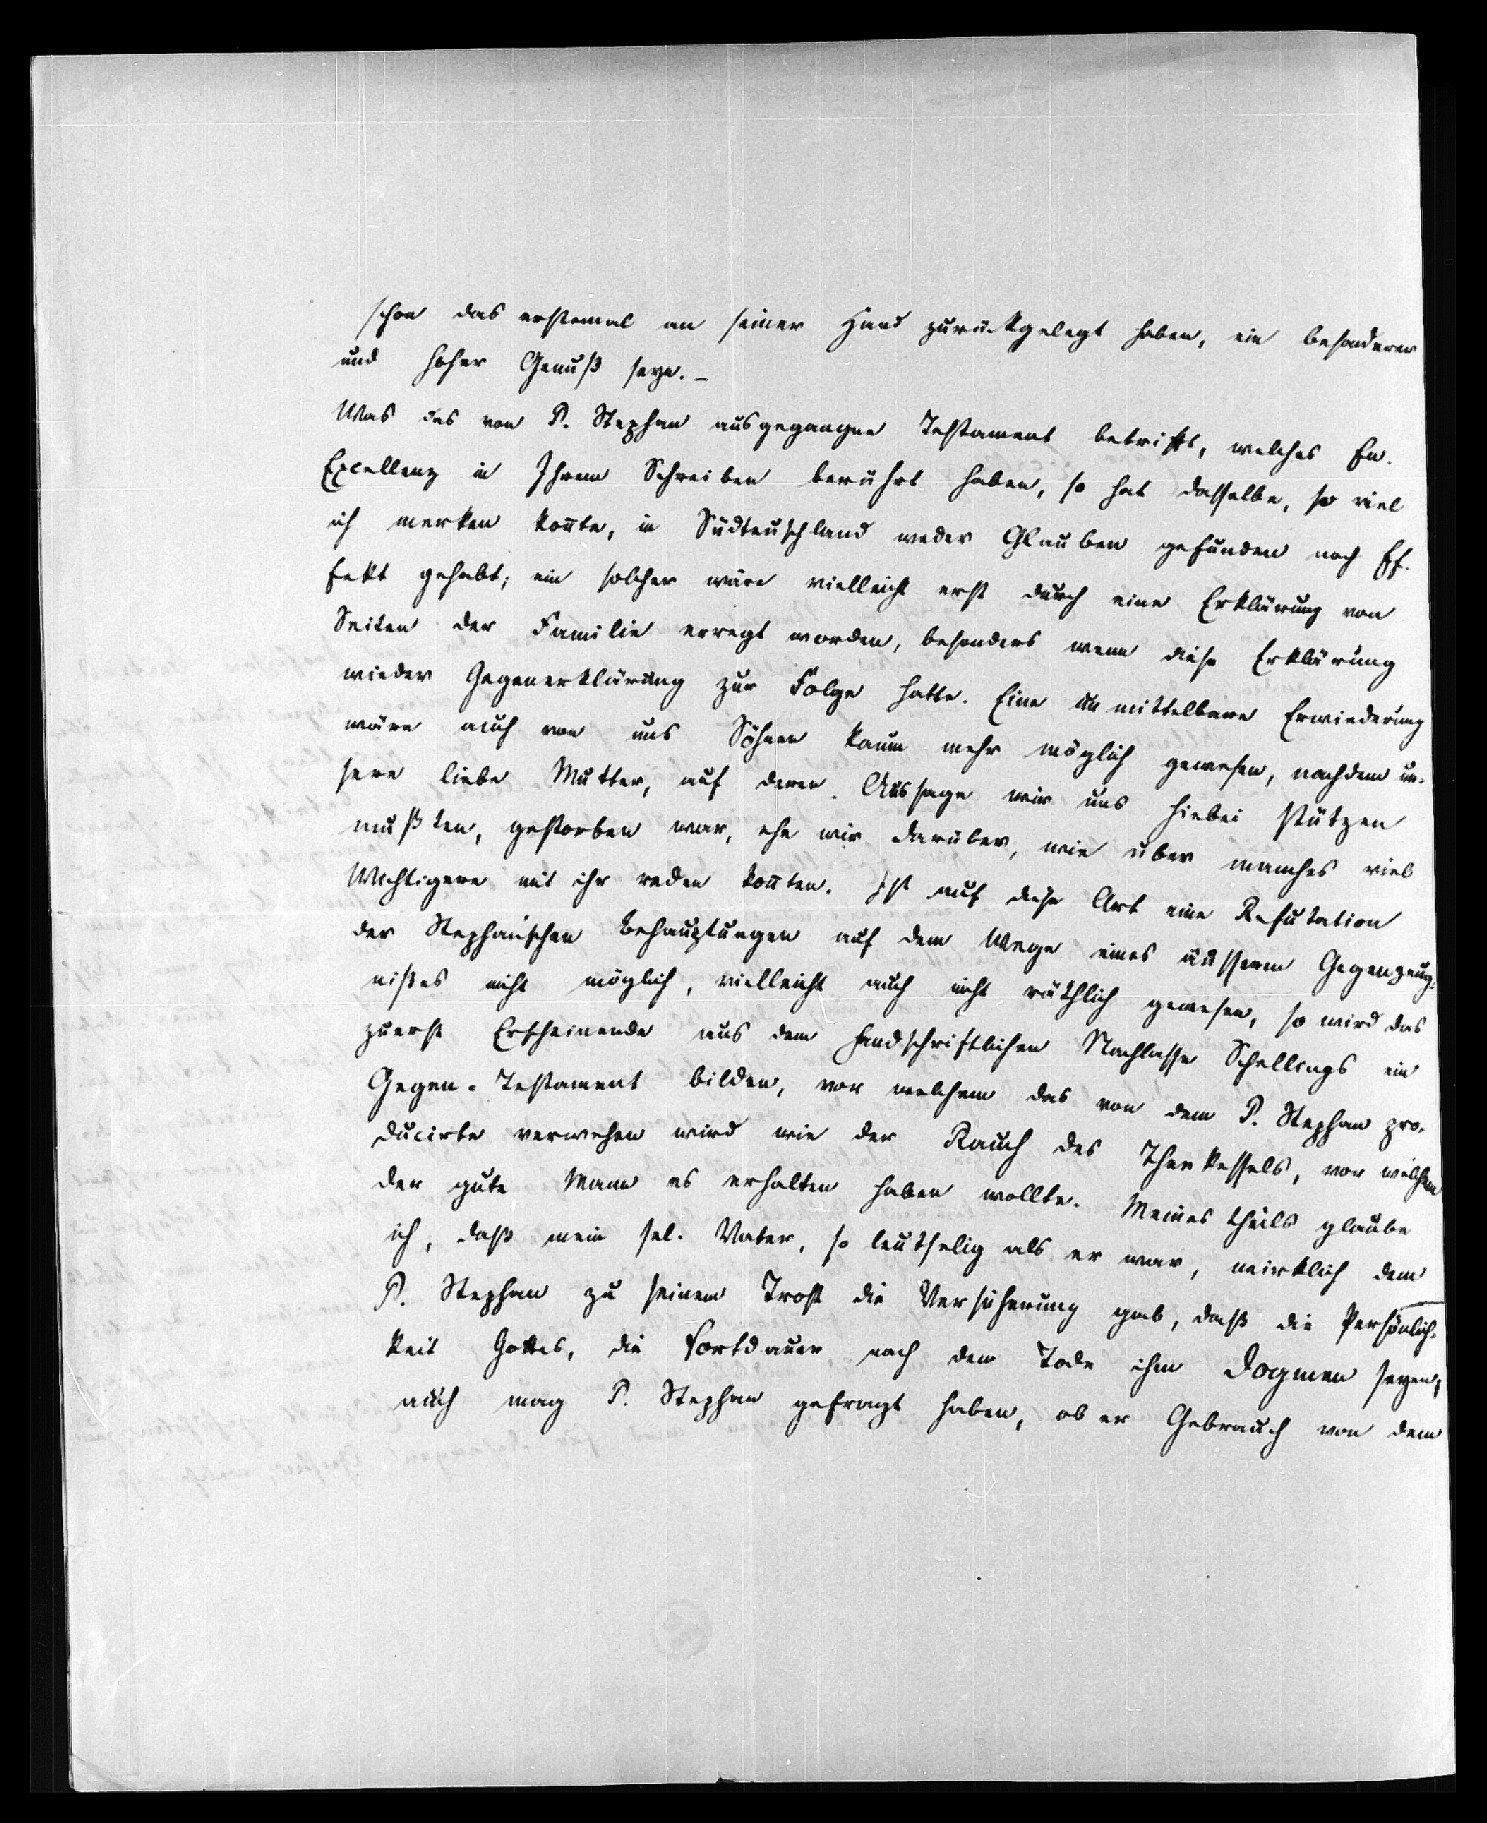 schon das erstemal an seiner Hand zurückgelegt haben, ein besonderer
und hoher Genuß seyn. –
Was das von P. Stephan ausgegangne Testament betrifft, welches Ew.
Excellenz in Ihrem Schreiben berührt haben, so hat dasselbe, so viel
ich merken kon̄te, in Südteutschland weder Glauben gefunden noch Ef-
fekt gehabt; ein solcher wäre vielleicht erst durch eine Erklärung von
Seiten der Familie erregt worden, besonders wenn diese Erklärung
wieder Gegenerklärung zur Folge hatte. Eine unmittelbare Erwiederung
wäre auch von uns Söhnen kaum mehr möglich gewesen, nachdem un-
sere liebe Mutter, auf deren Aussage wir uns hiebei stützen
mußten, gestorben war, ehe wir darüber, wie über manches viel
Wichtigere mit ihr reden kon̄ten. Ist auf diese Art eine Refutation
der Stephan'schen Behauptungen auf dem Wege eines äusseren Gegenzeug-
nißes nicht möglich, vielleicht auch nicht räthlich gewesen, so wird das
zuerst Erscheinende aus dem handschriftlichen Nachlasse Schellings ein
Gegen-Testament bilden, vor welchem das von dem P. Stephan pro-
ducirte verwehen wird wie der Rauch des Theekessels, vor welchem
der gute Mann es erhalten haben wollte. Meines theils glaube
ich, daß mein sel. Vater, so leutselig als er war, wirklich dem
P. Stephan zu seinem Trost die Versicherung gab, daß die Persönlich-
keit Gottes, die Fortdauer nach dem Tode ihm Dogmen seyen;
auch mag P. Stephan gefragt haben, ob er Gebrauch von dem